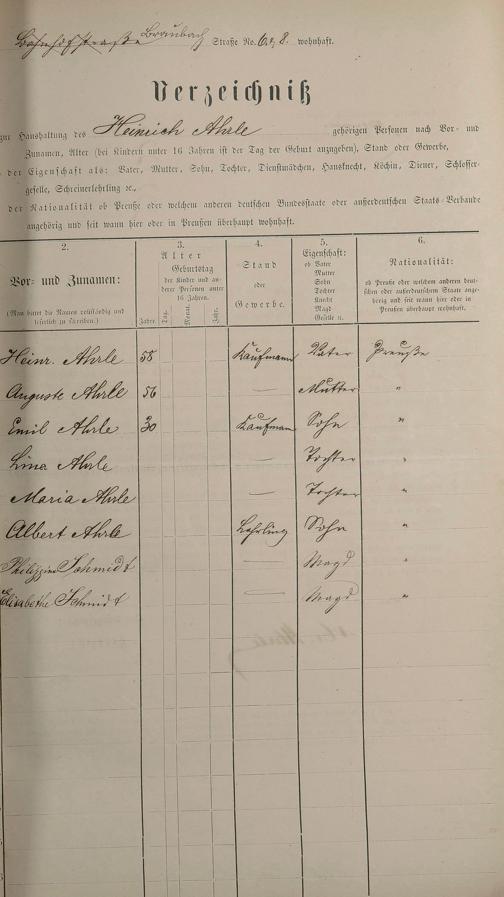 Bahnhofstraße Braubach Straße No. 6 & 8. wohnhaft.
Verzeichniß
zur Haushaltung des Heinrich Ahrle gehörigen Personen nach Vor- und
Zunamen, Alter (bei Kindern unter 16 Jahren ist der Tag der Geburt anzugeben), Stand oder Gewerbe,
der Eigenschaft als: Vater, Mutter, Sohn, Tochter, Dienstmädchen, Hausknecht, Köchin, Diener, Schlosser-
geselle, Schreinerlehrling ꝛc.,
der Nationalität ob Preuße oder welchem anderen deutschen Bundesstaate oder außerdeutschem Staats-Verbande
angehörig und seit wann hier oder in Preußen überhaupt wohnhaft.
2. 3. 4. 5. 6.
Vor- und Zunamen:
(Man bittet die Namen vollständig und
leserlich zu schreiben.)
Alter
Geburtstag
der Kinder und an-
derer Personen unter
16 Jahren.
Jahre. Tag. Monat. Jahr.
Stand
oder
Gewerbe.
Eigenschaft:
ob Vater
Mutter
Sohn
Tochter
Knecht
Magd
Geselle ꝛc.
Nationalität:
ob Preuße oder welchem anderen deut-
schen oder außerdeutschem Staate ange-
hörig und seit wann hier oder in
Preußen überhaupt wohnhaft.
Heinr. Ahrle 58 Kaufmann Vater Preuße
Auguste Ahrle 56 — Mutter "
Emil Ahrle 30 Kaufman Sohn "
Lina Ahrle Tochter "
Maria Ahrle — Tochter "
Albert Ahrle Lehrling Sohn "
Philippine Schmidt — Magd "
Elisabethe Schmidt — Magd "